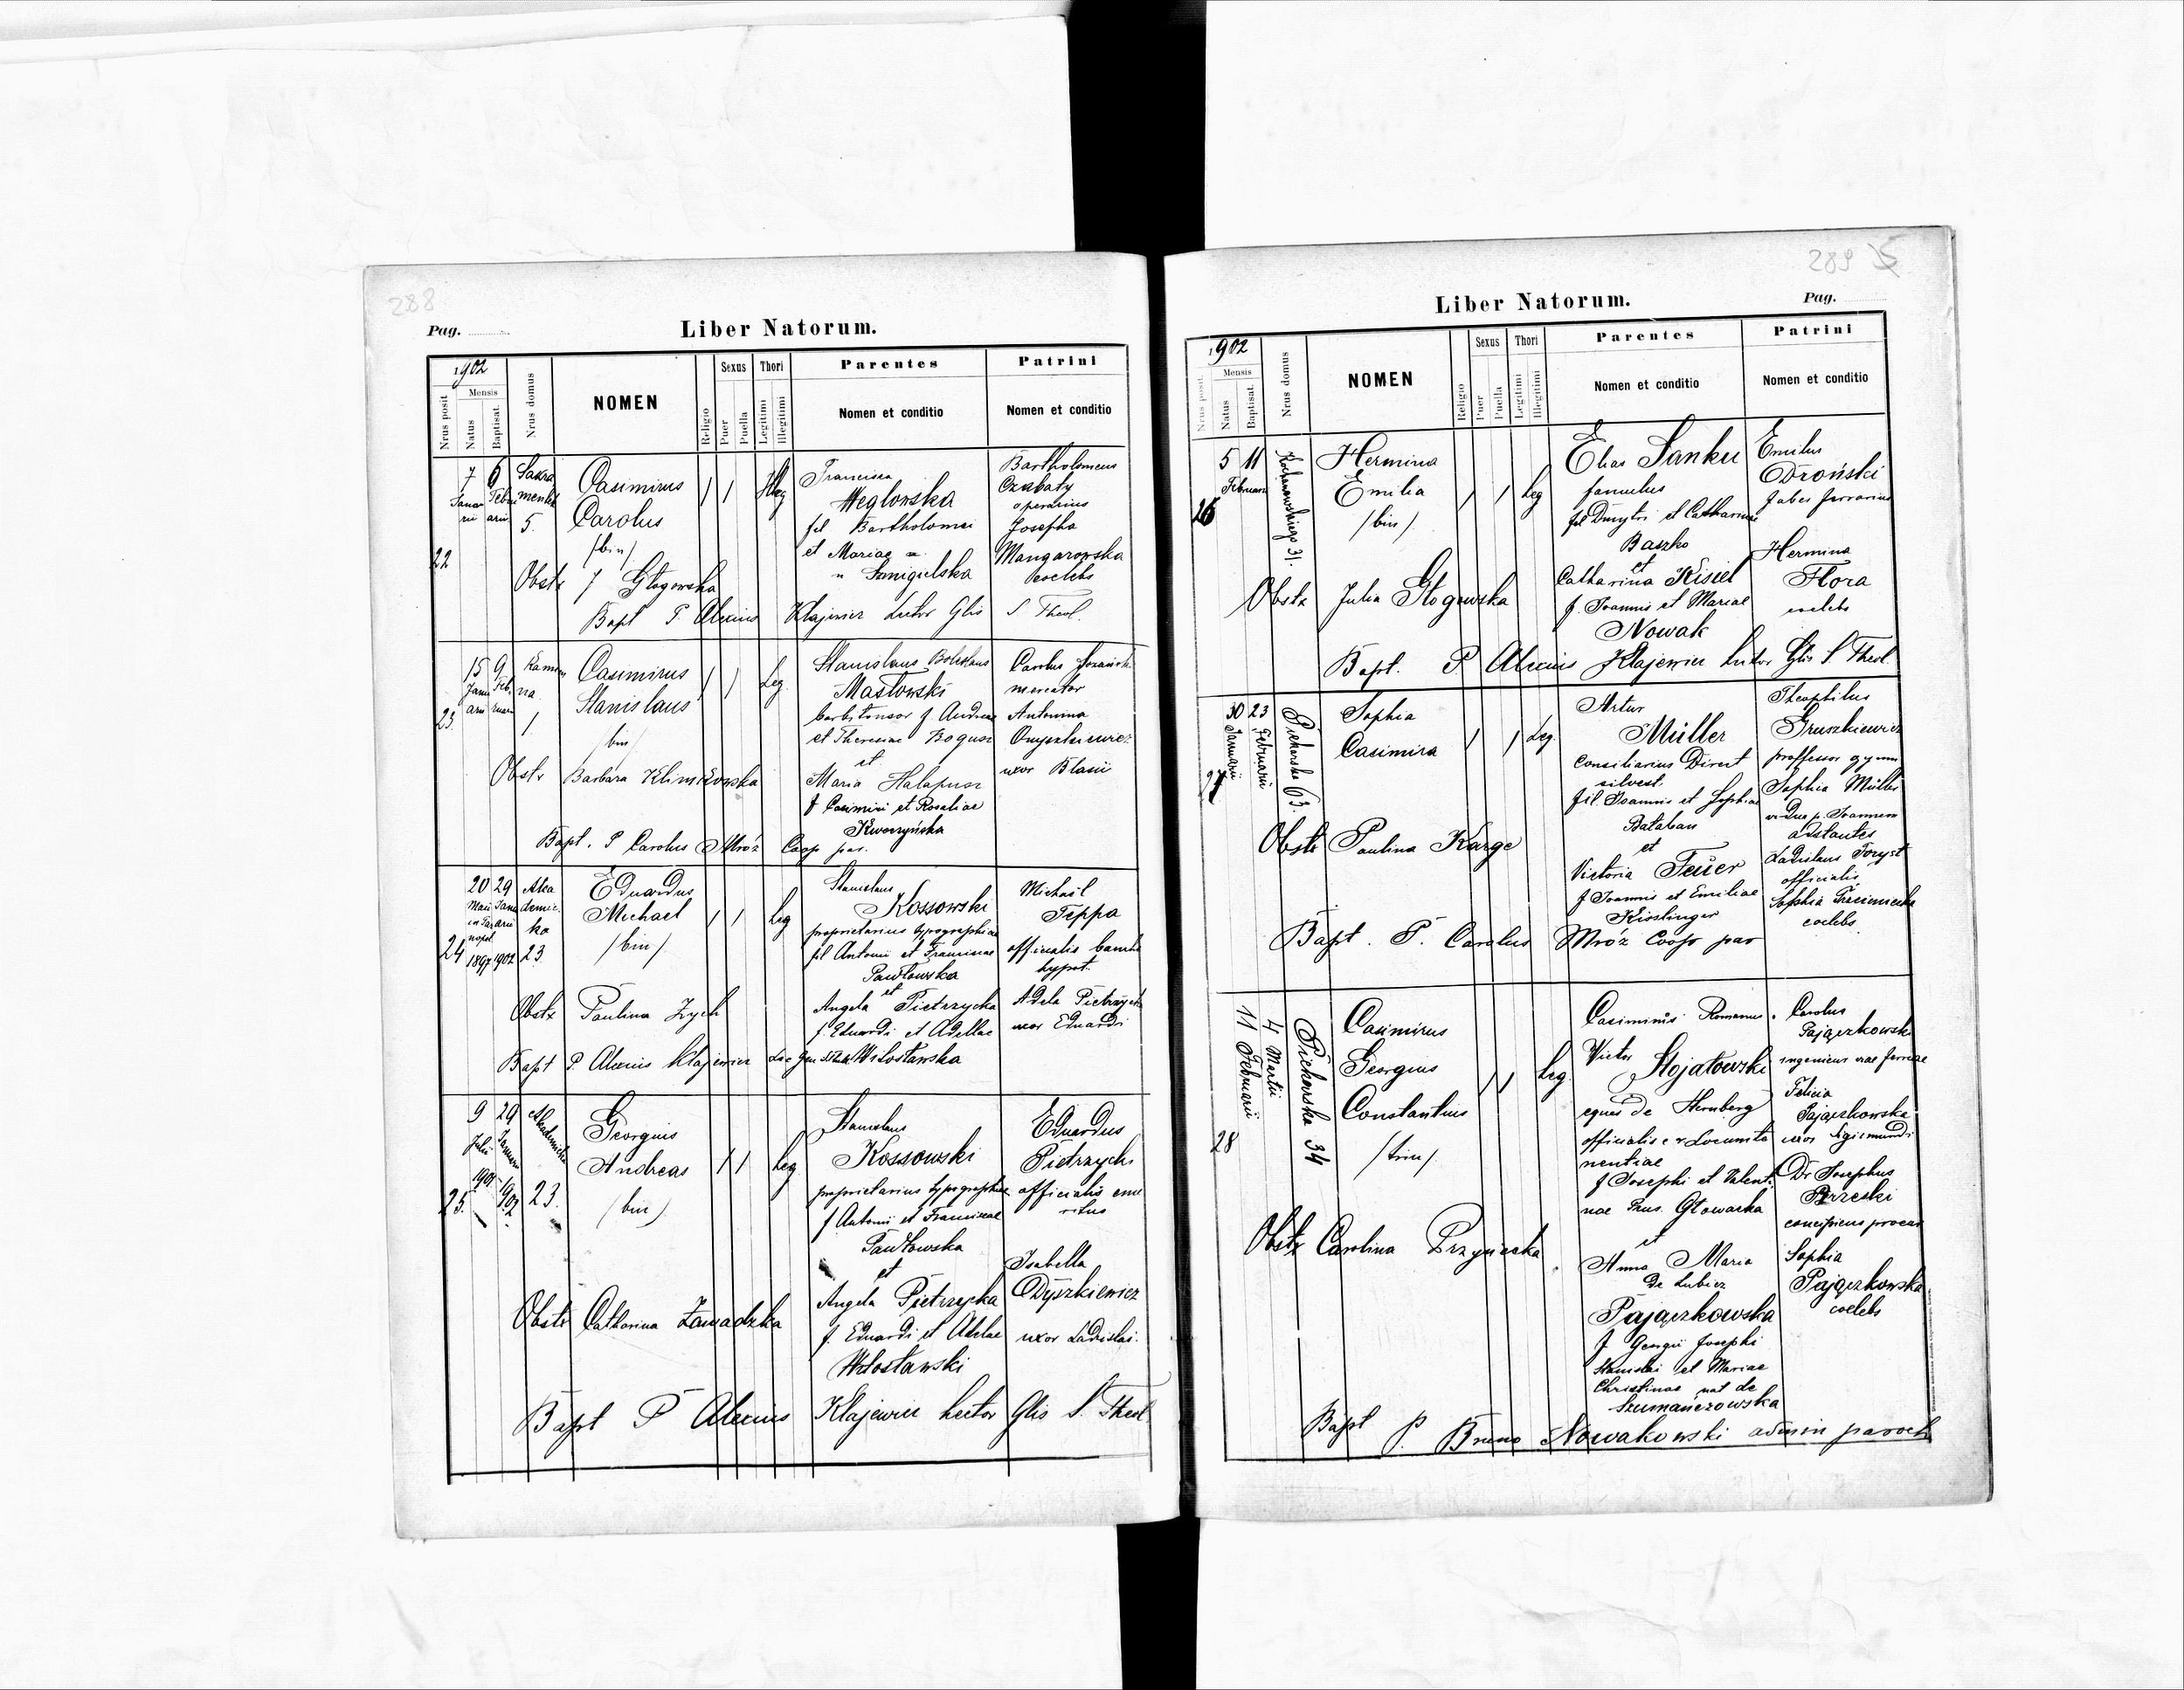 288
Pag.
Liber Natorum.
1902
Mensis
Nrus posit
Natus
Baptisat.
Nrus domus
NOMEN
Religio
Sexus
Puer
Puella
Thori
Legitimi
Illegitimi
Parentes
Nomen et conditio
Patrini
Nomen et conditio
22
7
Janua
rii
6
Febru
arii
Sakra
mentek
5.
Casimirus
Carolus
/bin/
Illeg
Francisca
Węglowska
fil Bartholomei
et Mariae
Smigielska
Bartholomeus
Czabaty
operarius
Josepha
Mangarowska
coelebs
Obstx J Głogowska
Bapt P Alexius Klajewicz Lector Glis S Theol.
23.
15
Janu
arii
9
Feb
ruarii
Kamien
na
1
Casimirus
Stanislaus
/bin/
Leg.
Stanislaus Boleslaus
Masłowski
barbitonsor f Andreae
et Theresiae Bogusz
et
Maria Halapusz
f Casimiri et Rosaliae
Kworzyńska
Carolus
mercator
Antonina
uxor Blasii
Obstx Barbara Klimkowska
Bapt. P Carolus Mróz Coop par.
24
20
Maii
in Tar
nopol
1897
29
Janu
arii
1902
Aka
demic
ka
23.
Eduardus
Michael
/bin/
Leg
Stanislaus
Kossowski
proprietarius typographiae
fil Antonii et Franciscae
Pawłowska
et
Angela Pietrzycka
f. Eduardi et Adellae
Wrłosławska
Michaël
Teppa
officialis banku
hypot.
Adela Pietrzycka
uxor Eduardi
Obstx Paulina Zych
Bapt P. Alexius Klajewicz
25.
9
Julii
1901
29
Januarii
1902
Akademicka
23.
Georgius
Andreas
/bin/
Leg
Stanislaus
Kossowski
proprietarius typographiae
f Antonii et Franciscae
Pawłowska
et
Angela Pietrzycka
f. Eduardi et Adelae
Wrłosławski
Eduardus
Pietrzycki
officialis eme
ritus
Isabella
Odyszkiewicz
uxor Ladislai.
Obstx Catharina Zawadzka
Bapt P Alexius Klajewicz Lector Glis S. Theol
289
Liber Natorum.
Pag.
1902
Mensis
Nrus posit
Natus
Baptisat.
Nrus domus
NOMEN
Religio
Sexus
Puer
Puella
Thori
Legitimi
Illegitimi
Parentes
Nomen et conditio
Patrini
Nomen et conditio
26
5 11
Februarii
Kochanowskiego 31.
Hermina
Emilia
/bin/
Leg
Elias Sanku
famulus
fil Dmytri et Catharinae
Baszko
et
Catharina Kisiel
f. Joannis et Mariae
Nowak
Emilus
Odroński
faber ferrarius
Hermina
Flora
coelebs
Obstx Julia Głogowska
Bapt. P. Alexius Klajewicz Lector Glis S Theol.
27
30
Januarii
23
Februarii
Piekarska 63.
Sophia
Casimira
Leg
Artur
Müller
Consiliarius Direct
silvest.
fil. Joannis et Sophiae
Bałaban
et
Victoria Feüer
f Joannis et Emiliae
Kisslinger
Theophilus
Gruszkiewicz
proffessor gymn
Sophia Müller
vidua p. Joannem
adstantes
Ladislaus Foryst
officialis
Sophia
coelebs
Obstx Paulina Karge
Bapt. P. Carolus Mróz Coop par
28
11 Februarii
4 Martii
Piekarska 34
Casimirus
Georgius
Constantius
/trin/
Leg.
Casimirus Romanus
Victor Stojałowski
eques de Hernberg
officialis c r Locumte
nentiae
f Josephi et Valenti
nae Prus. Głowacka
et
Anna Maria
de Lubicz
Pajączkowska
f Georgii Josephi
Stanislai et Mariae
Christinae nat de
Szumańczowska
Carolus
Pajączkowski
ingenieus viae ferreae
Felicia
Pajączkowska
uxor Sigismundi
Dr Josephus
Brzeski
concipiens procur
Sophia
Pajączkowska
coelebs
Obstx Carolina Przyniecka
Bapt P. Bruno Nowakowski admin paroch